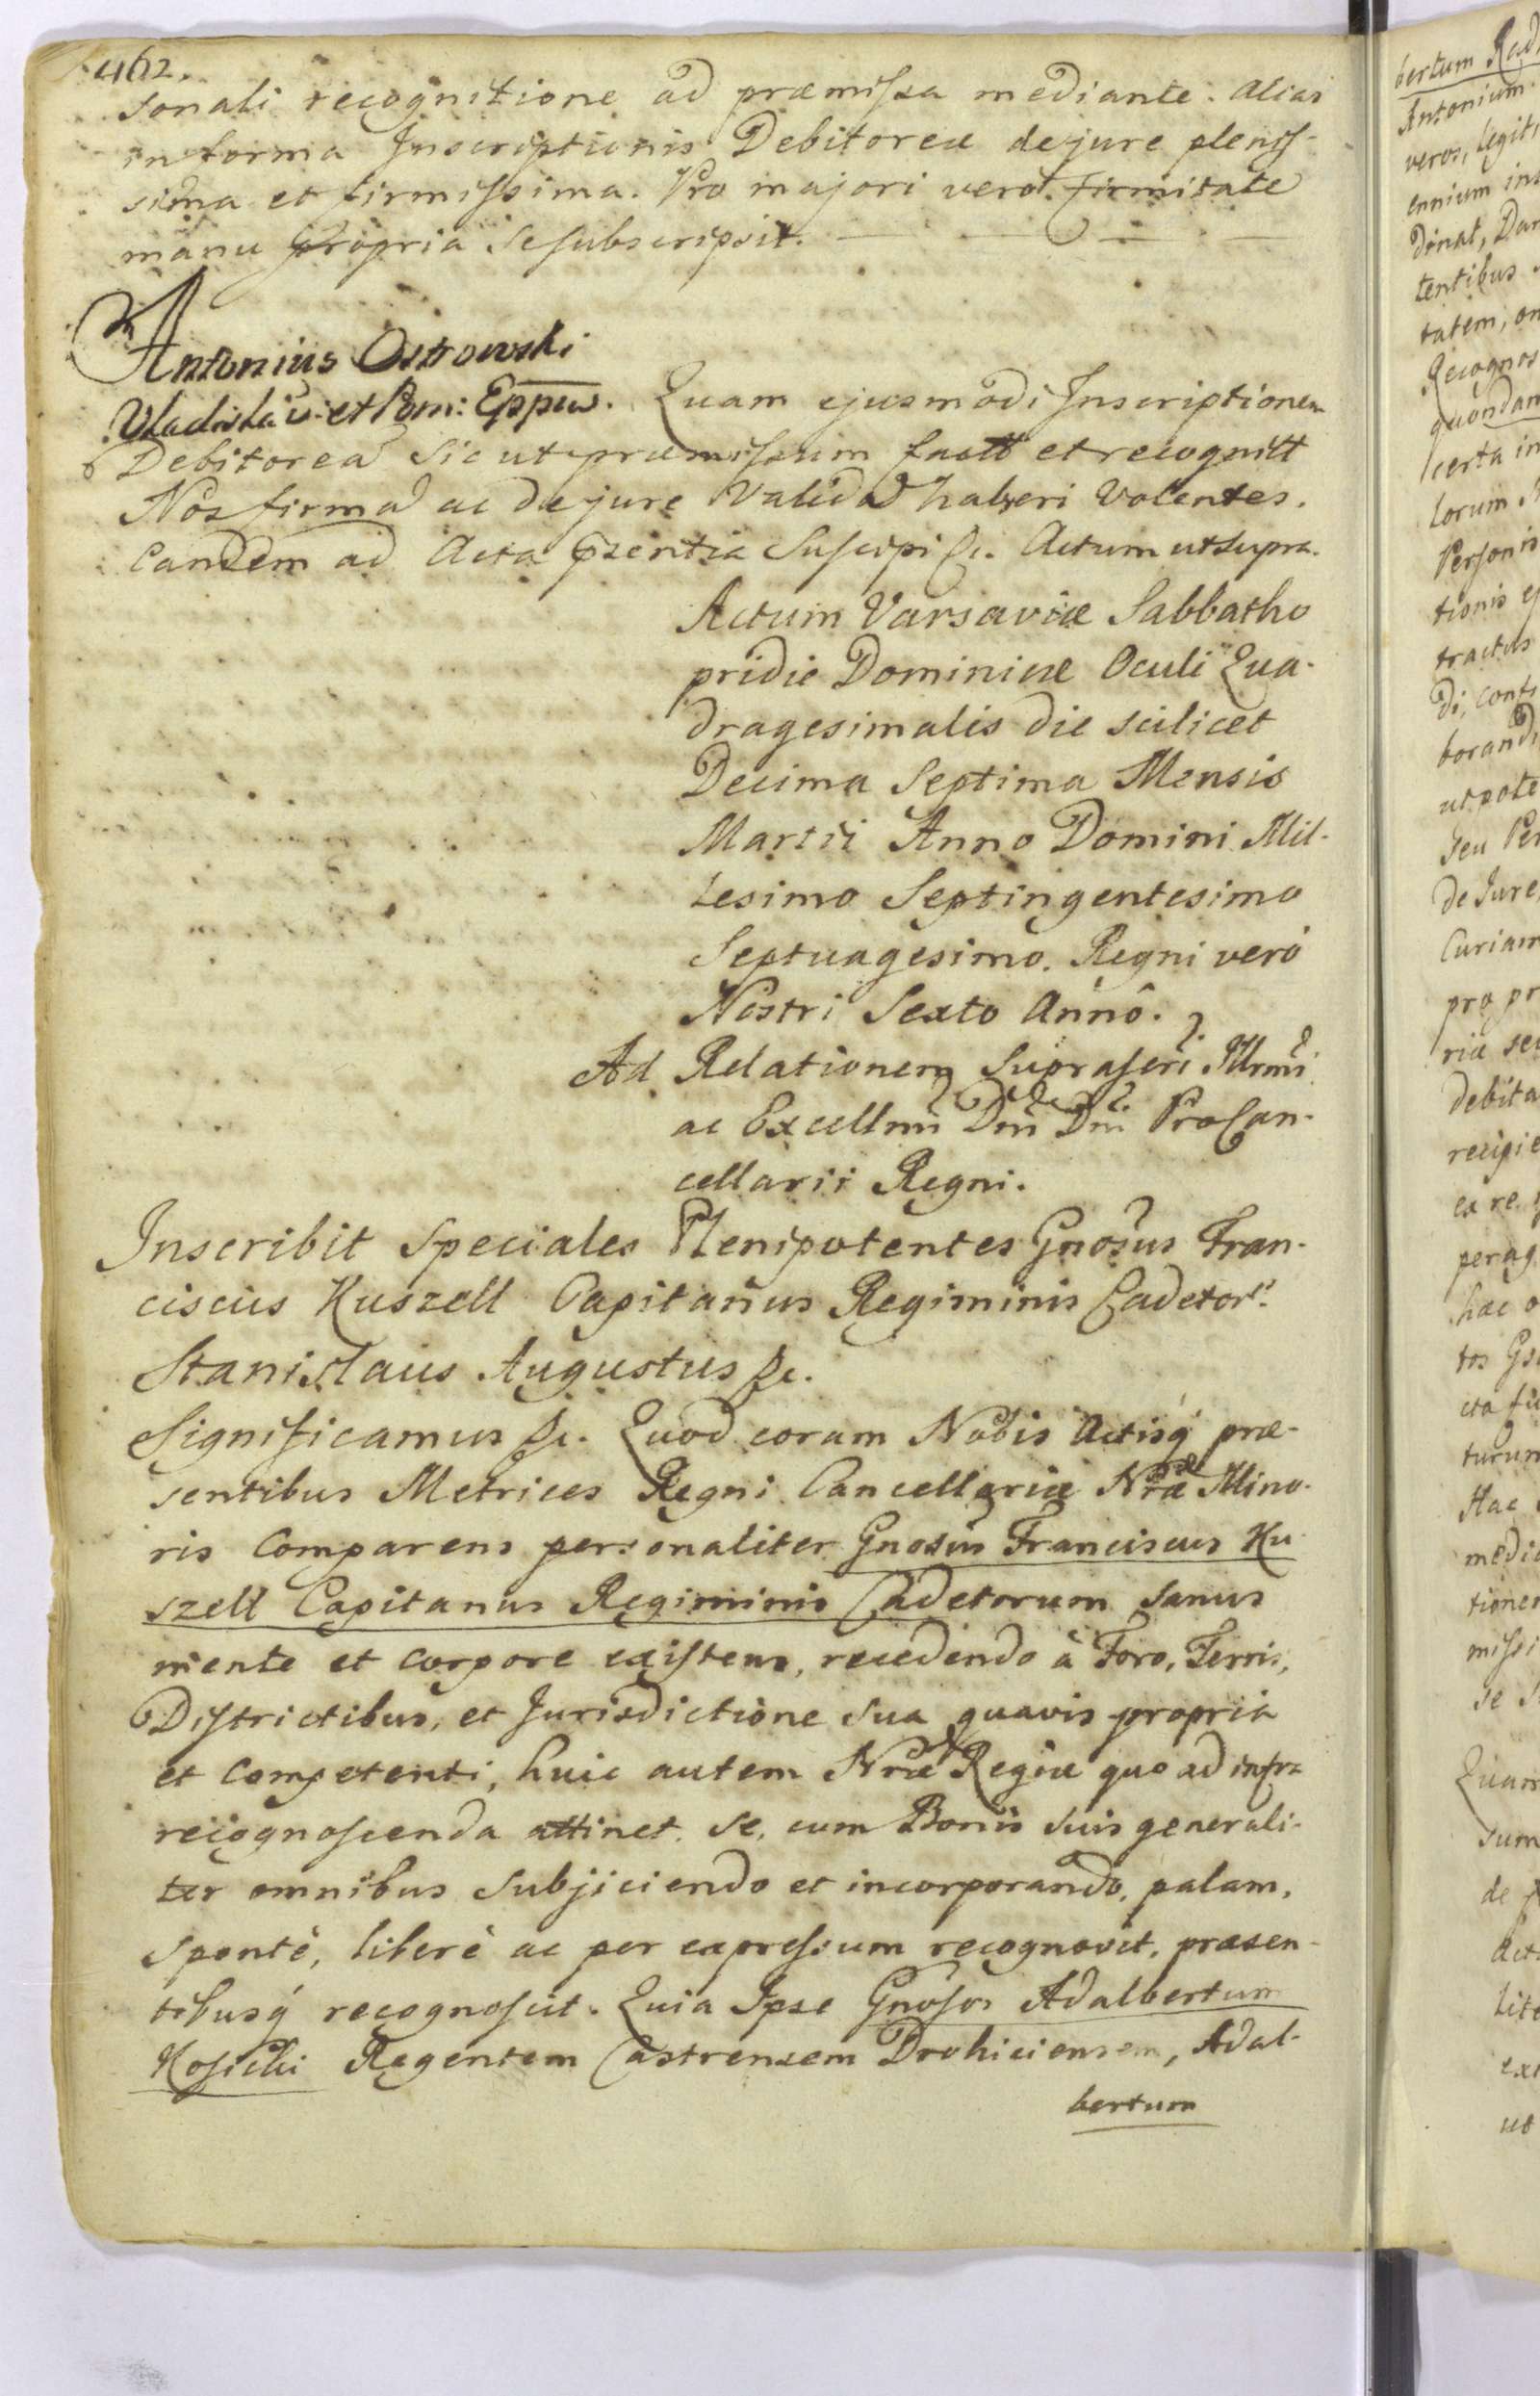 462.
sonali recognitione ad præmissa mediante. Alias
in forma Inscriptionis Debitoreæ de jure plenis-
sima et firmissima. Pro majori vero firmitate
manu propria se subscripsit.
Antonius Ostrowski
Vladislav: et Pom: Eppus. Quam ejusmodi Inscriptionem
Debitorea sic ut præmissum factt et recognitt
Nos firma ac de jure Valida haberi Volentes.
Eandem ad Acta pzentia Suscipi &c. Actum ut supra.
Actum Varsaviæ Sabbatho
pridie Dominicæ Oculi Qua-
dragesimalis die scilicet
Decima Septima Mensis
Martii Anno Domini Mil-
lesimo Septingentesimo
Septuagesimo. Regni verò
Nostri Sexto Annô.
Ad Relationem Suprascri Illrmi
ac Excellmi Dni Dni ProCan-
cellarii Regni.
Inscribit Speciales Plenipotentes Gnosus Fran-
ciscus Kuszell Capitanus Regiminis Cadetor:
Stanislaus Augustus &c.
Significamus &c. Quod coram Nobis Actisq præ-
sentibus Metrices Regni Cancellariæ Nræ Mino-
ris Comparens personaliter Gnosus Franciscus Ku-
szell Capitanus Regiminis Cadetorum sanus
mente et corpore existens, recedendo à Foro, Terris,
Districtibus, et Jurisdictione sua quavis propria
et Competenti, huic autem Nræ Regiæ quo ad infra
recognoscenda attinet. se, cum Bonis suis generali-
ter omnibus subjiciendo et incorporando, palam,
spontè, liberè ac per expressum recognovit, præsen-
tibusq recognoscit. Quia Ipse Gnosos Adalbertum
Kosicki Regentem Castrensem Drohiciensem, Adal-
bertum
bertum
Antonium
veros,
ennium
tentibus
tatem,
quondam
certa in
lorum
Personis
tionis
tractus
utpote
seu
de Jure
Curiam
debita